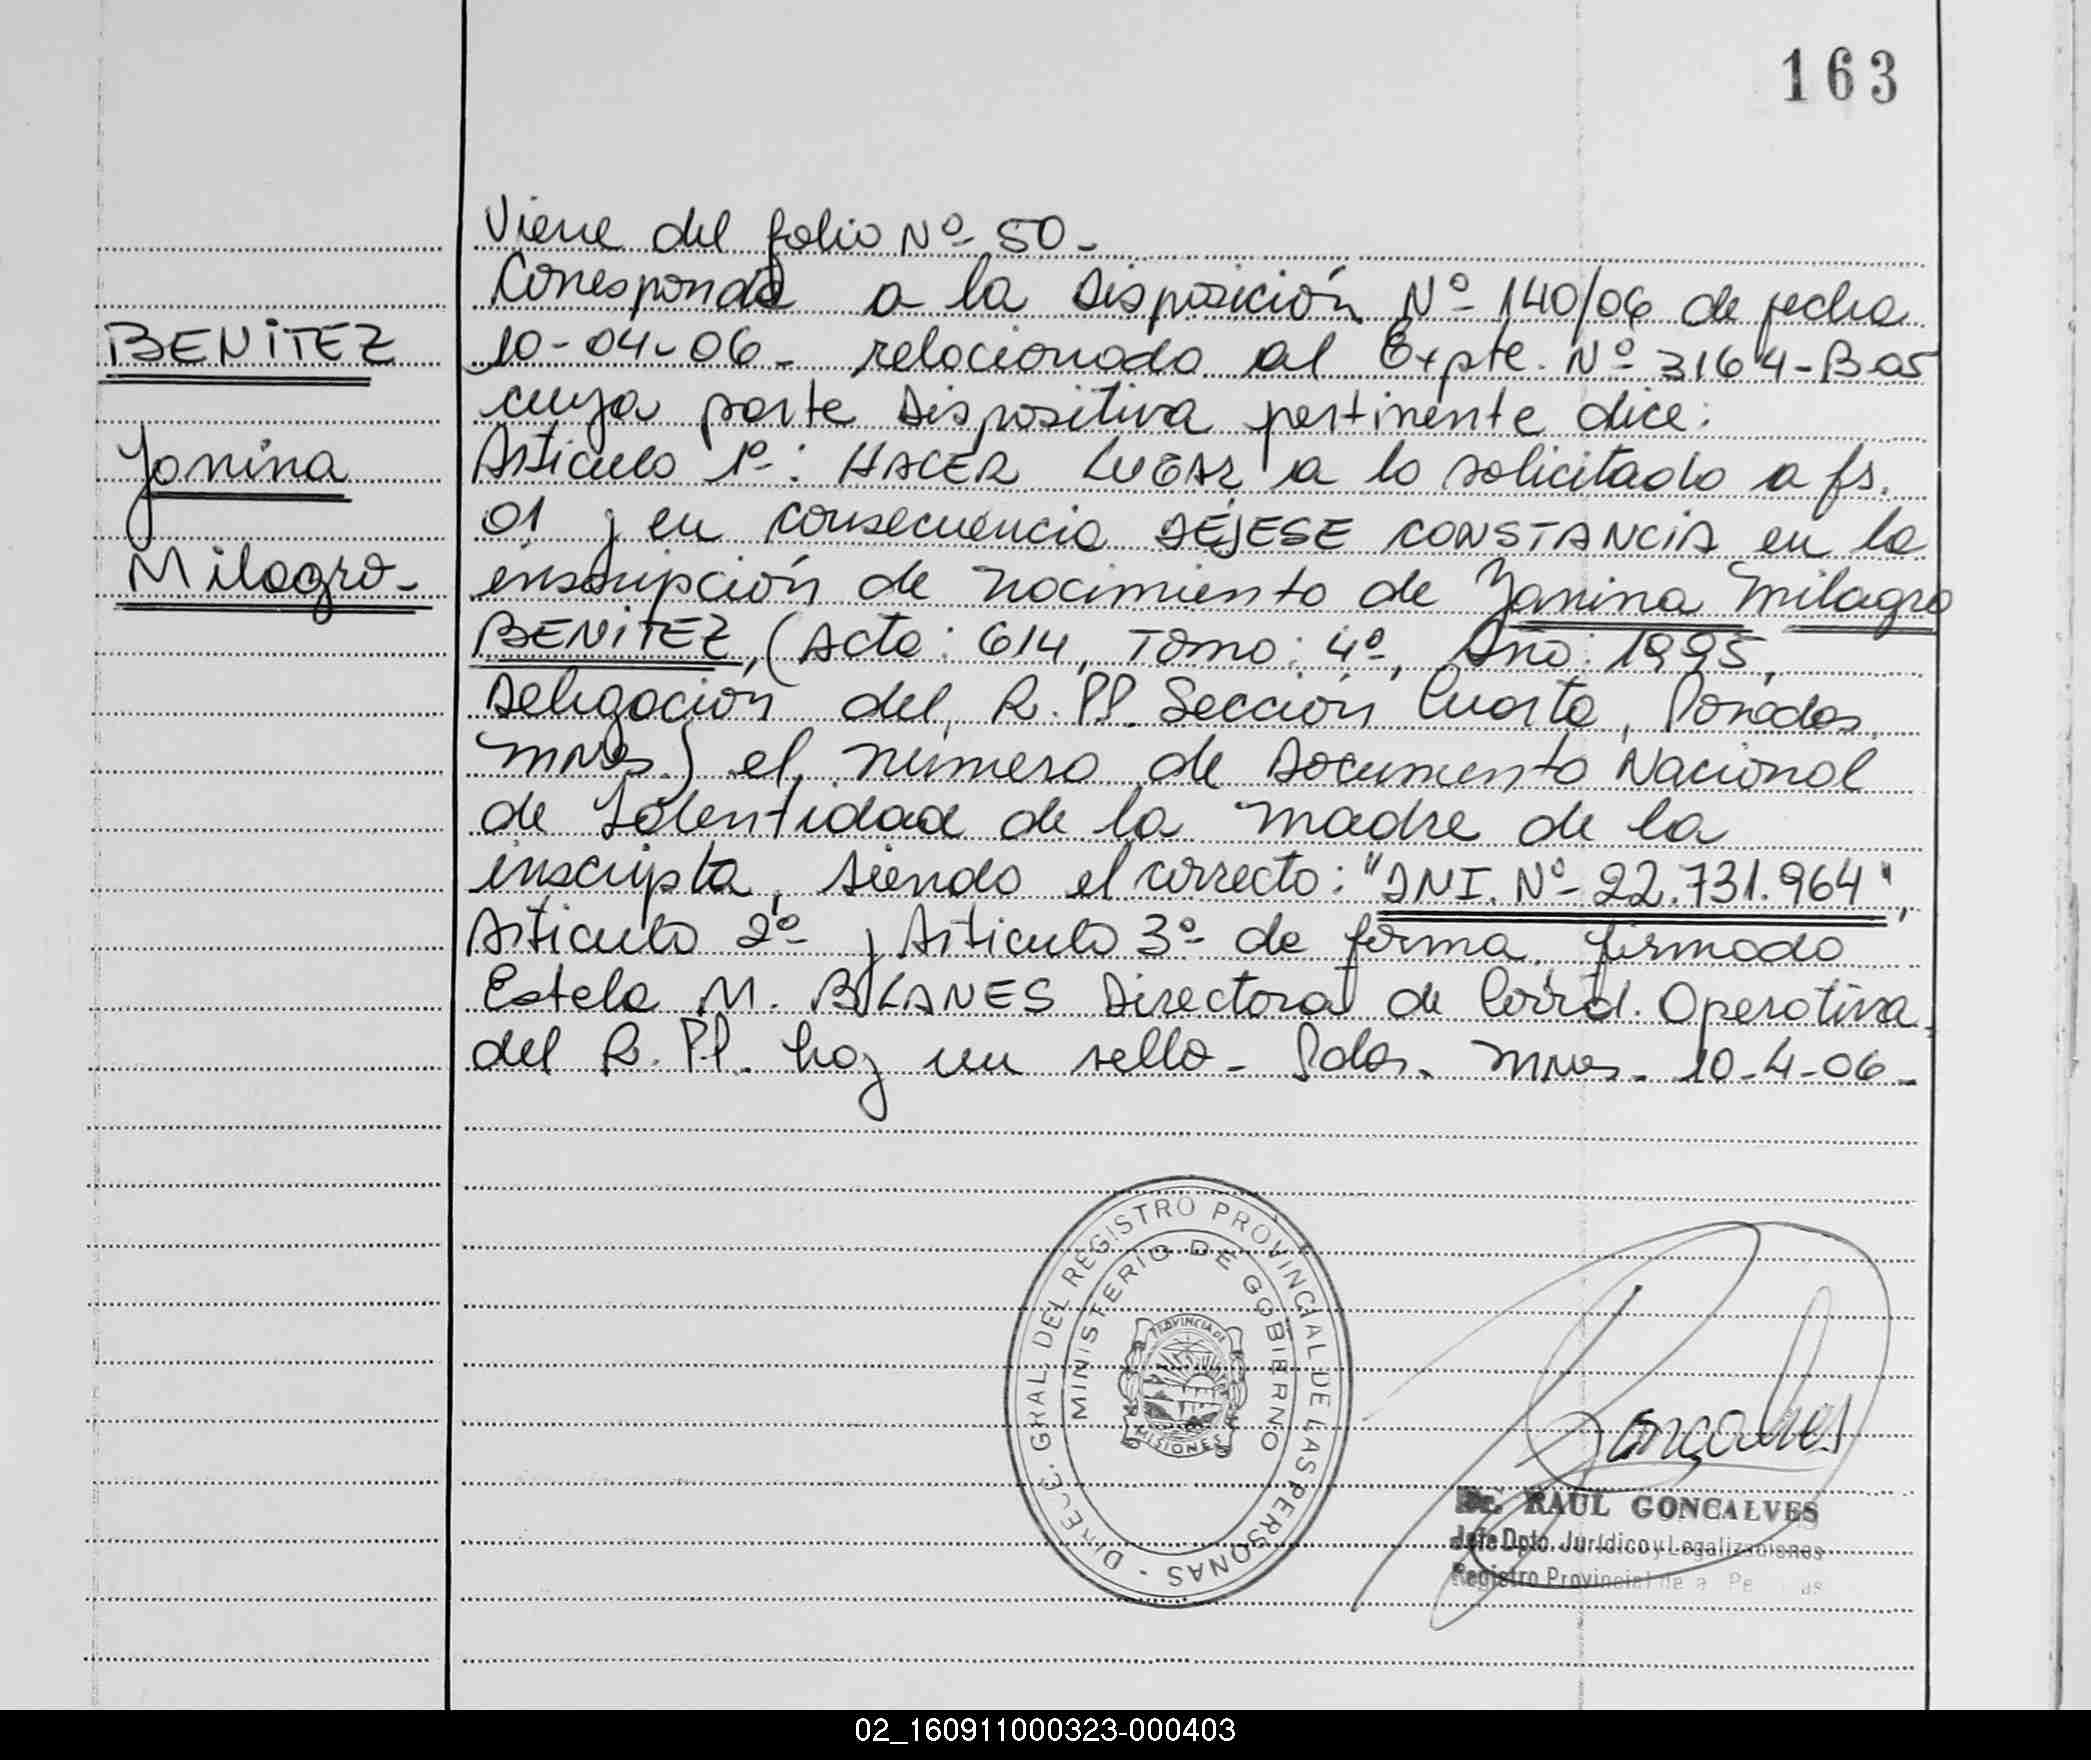 163
Viene del folio Nº 50-
Corresponde a la Disposición Nº 140/06 de fecha
BENITEZ
10-04-06- relacionado al Expte. Nº 3164-B-05
cuya parte Dispositiva pertinente dice:
Yanina
Articulo 1º: HACER LUGAR a lo solicitado a fs.
01 y en consecuencia DÉJESE CONSTANCIA en la
Milagro-
inscripción de nacimiento de Yanina Milagro
BENITEZ, (Acta: 614, Tomo: 4º, Año: 1995,
Delegación del R.P.P. Sección Cuarta, Posadas,
Mnes.) el número de Documento Nacional
de Identidad de la madre de la
inscripta, siendo el correcto: "DNI. Nº 22.731.964",
Articulo 2º y Articulo 3º de forma, firmado
Estela M. BLANES Directora de Coord. Operativa
del R.P.P. hay un sello- Pdas. Mnes. 10-4-06-
DIRECC. GRAL. DEL REGISTRO PROVINCIAL DE LAS PERSONAS -
MINISTERIO DE GOBIERNO
PROVINCIA DE
MISIONES
Goncalves
Dr. RAUL GONCALVES
Jefe Dpto. Jurídico y Legalizaciones
Registro Provincial de
02_160911000323-000403